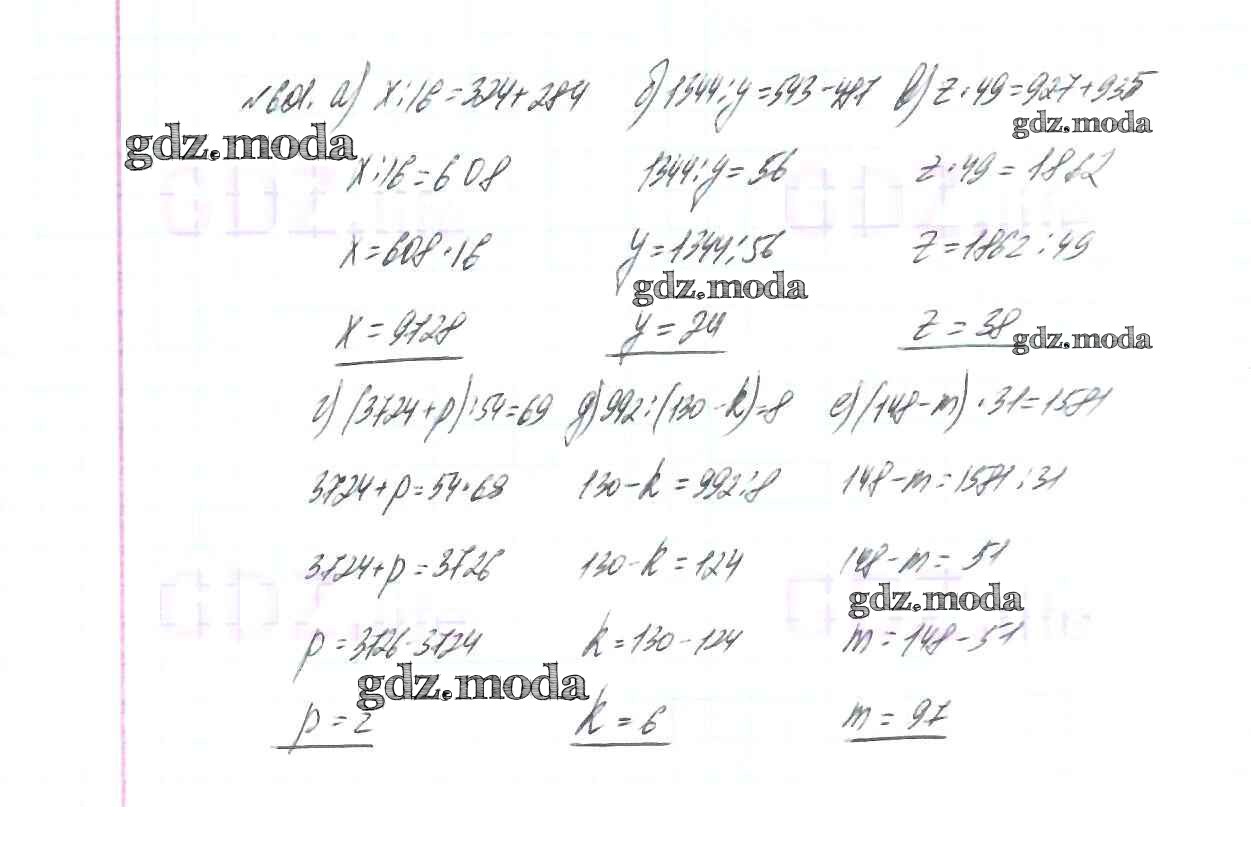 №601. а) x:16=324+284 б) 1344:y=543-487 в) z·49=927+935
gdz.moda gdz.moda
x:16=608 1344:y=56 z·49=1862
x=608·16 y=1344:56 z=1862:49
gdz.moda
x=9728 y=24 z=38 gdz.moda
г) (3724+p):54=69 д) 992:(130-k)=8 е) (148-m)·31=1581
3724+p=54·69 130-k=992:8 148-m=1581:31
3724+p=3726 130-k=124 148-m=51
gdz.moda
p=3726-3724 k=130-124 m=148-51
gdz.moda
p=2 k=6 m=97